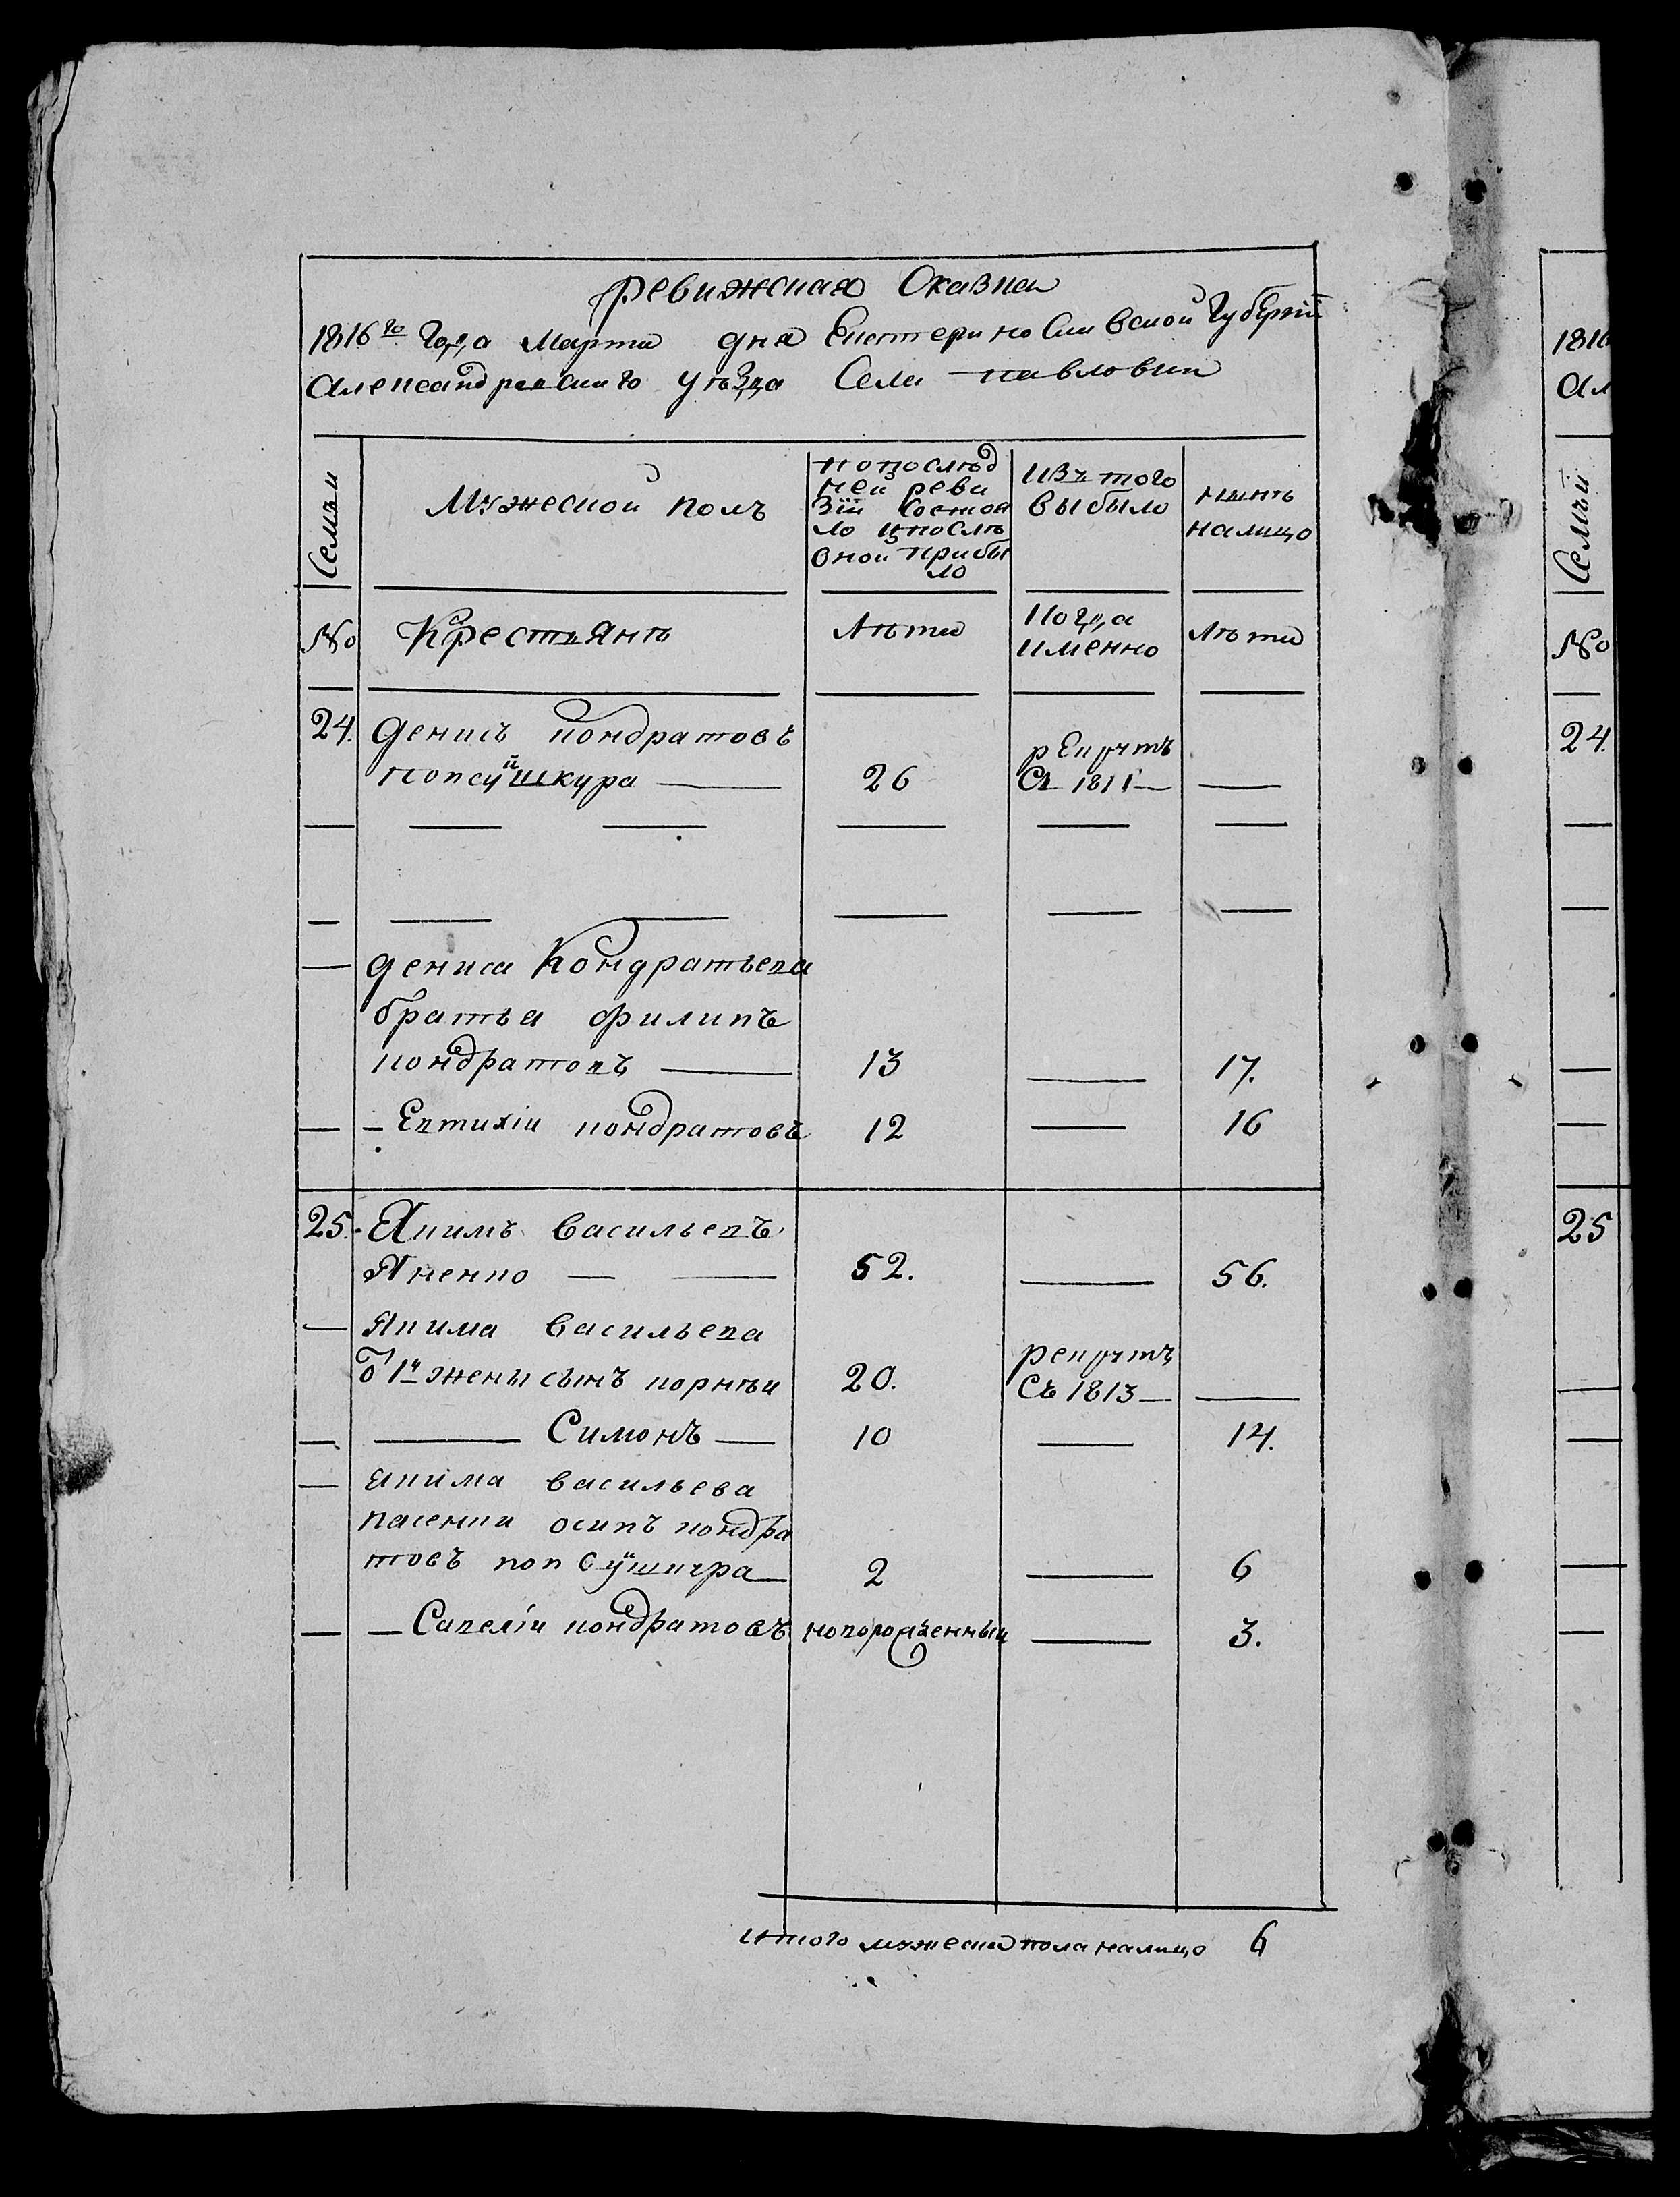 ревижская Сказка
1816го года Марта дня Екатеринославской Губерніи
Александровскаго уѣзда Села павловки
Семьи
Мужеской полъ
попослѣд
ней реви
зіи Состоя
ло ипослѣ
оной прибы
ло
изъ того
выбыло
нынѣ
налицо
№
Крестьянѣ
Лѣта
Когда
именно
Лѣта
24. денисъ кондратовъ
копсуйшкура 26
рекрутъ
Съ 1811
дениса Кондратьева
братья филипъ
кондратовъ 13 17.
Евтихіи кондратовъ 12 16
25. Якимъ васильевъ
Яненко 52. 56.
Якима васильева
т 1й жены сынъ корнѣи 20.
рекрутъ
Съ 1813
Симонъ 10 14.
якима васильева
пасенки осипъ кондра
товъ коп суйшкура 2 6
Савеліи кондратовъ новорожденныи 3.
итого мужеска пола налицо 6
1816
Ал
Семьи
№
24.
25